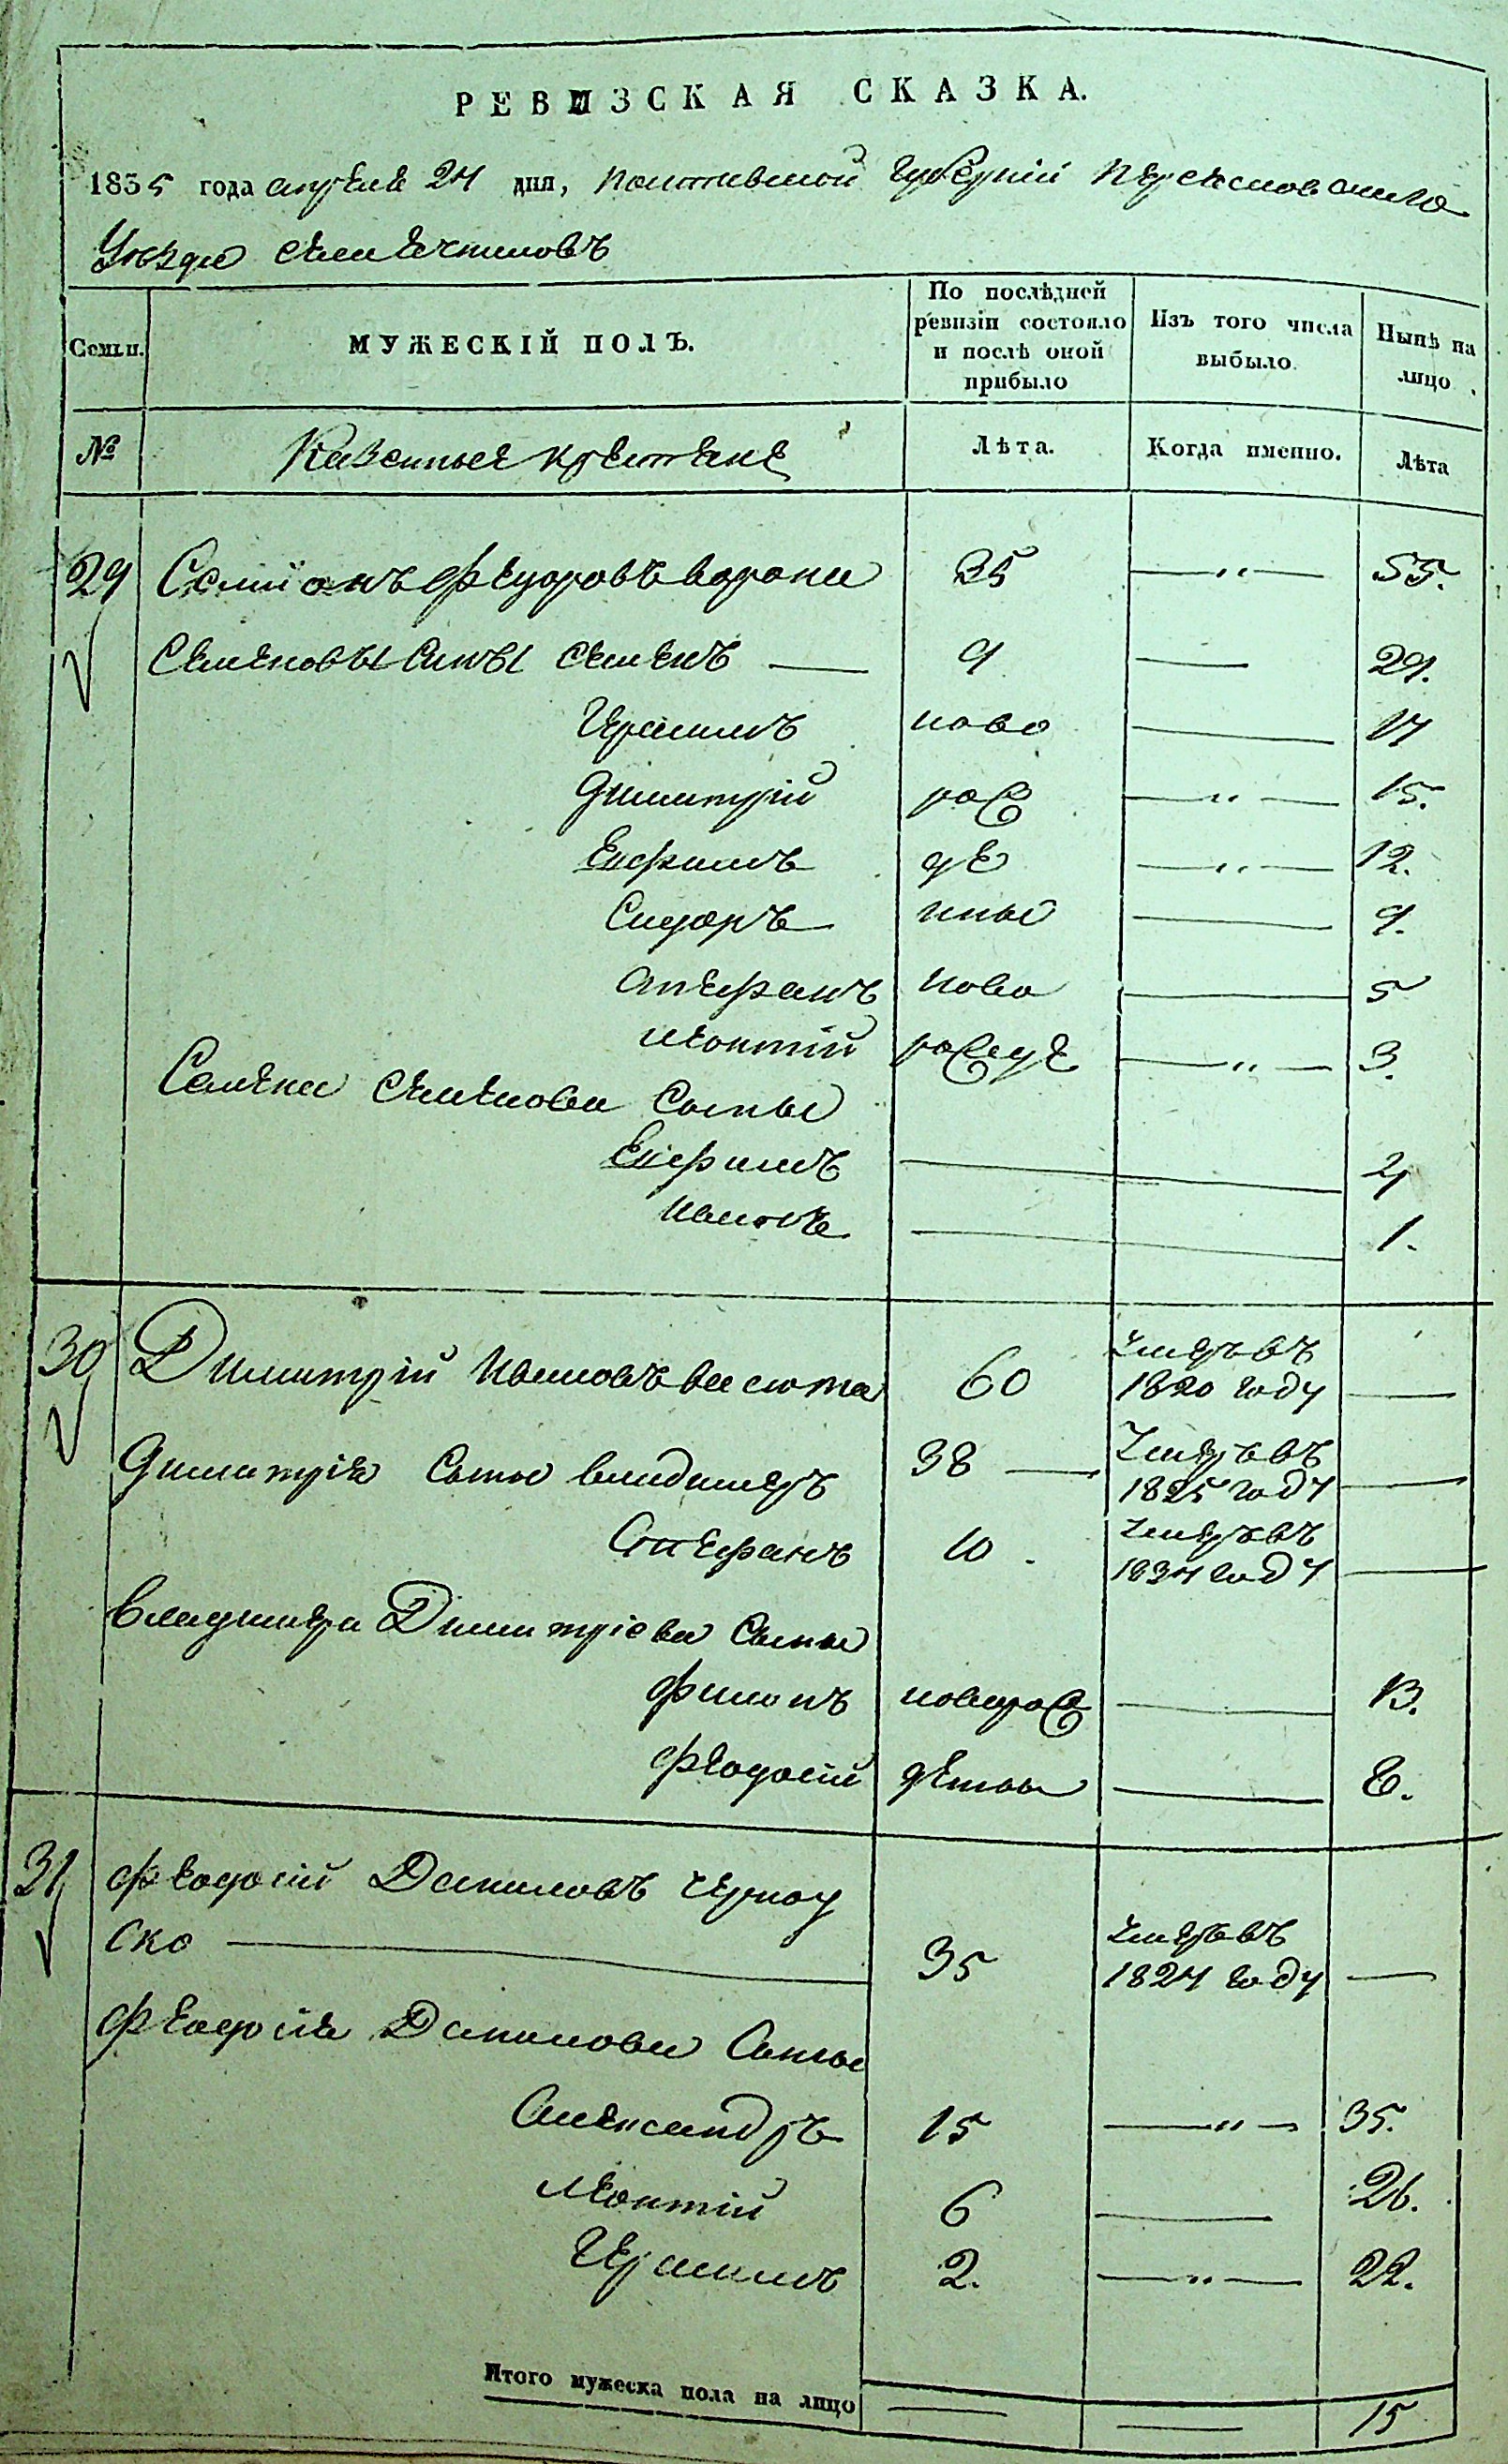 РЕВИЗСКАЯ СКАЗКА.
1835 года апреля 24 дня, Полтавской Губерніи Переяславскаго
Уезда
Семьи.
МУЖЕСКІЙ ПОЛЪ.
По послѣдней ревизіи состояло и послѣ оной прибыло
Изъ того числа выбыло.
Нынѣ на лицо.
№
Казенные крестяне
Лѣта.
Когда именно.
Лѣта
29 Семіонъ Федоровъ ворона 35 —"— 55.
Семеновы Сины Семенъ — 9 — 29.
Герасимъ ново — 17
Димитрій рож —"— 15.
Ефимъ де —"— 12.
Сидоръ нные — 9.
Стефанъ ново — 5
Леонтій рожде —"— 3.
Семена Семенова Сыны
Ефимъ — 4
Иванъ — 1.
30 Димитрій Ивановъ васюта 60 Умеръ въ
1820 году —
Димитрія Сыны владимеръ 38 — Умеръ въ
1825 году —
Стефанъ 10. Умеръ въ
1834 году —
владимера Димитріева Сыны
Филипъ новорож — 13.
Феодосій денные — 8.
31 Феодосій Даниловъ черноу
ско — 35 Умеръ въ
1824 году —
Феодосія Данилова Сыны
Александръ 15 —"— 35.
Леонтій 6 — 26.
Герасимъ 2. —"— 22.
Итого мужеска пола на лицо — — 15